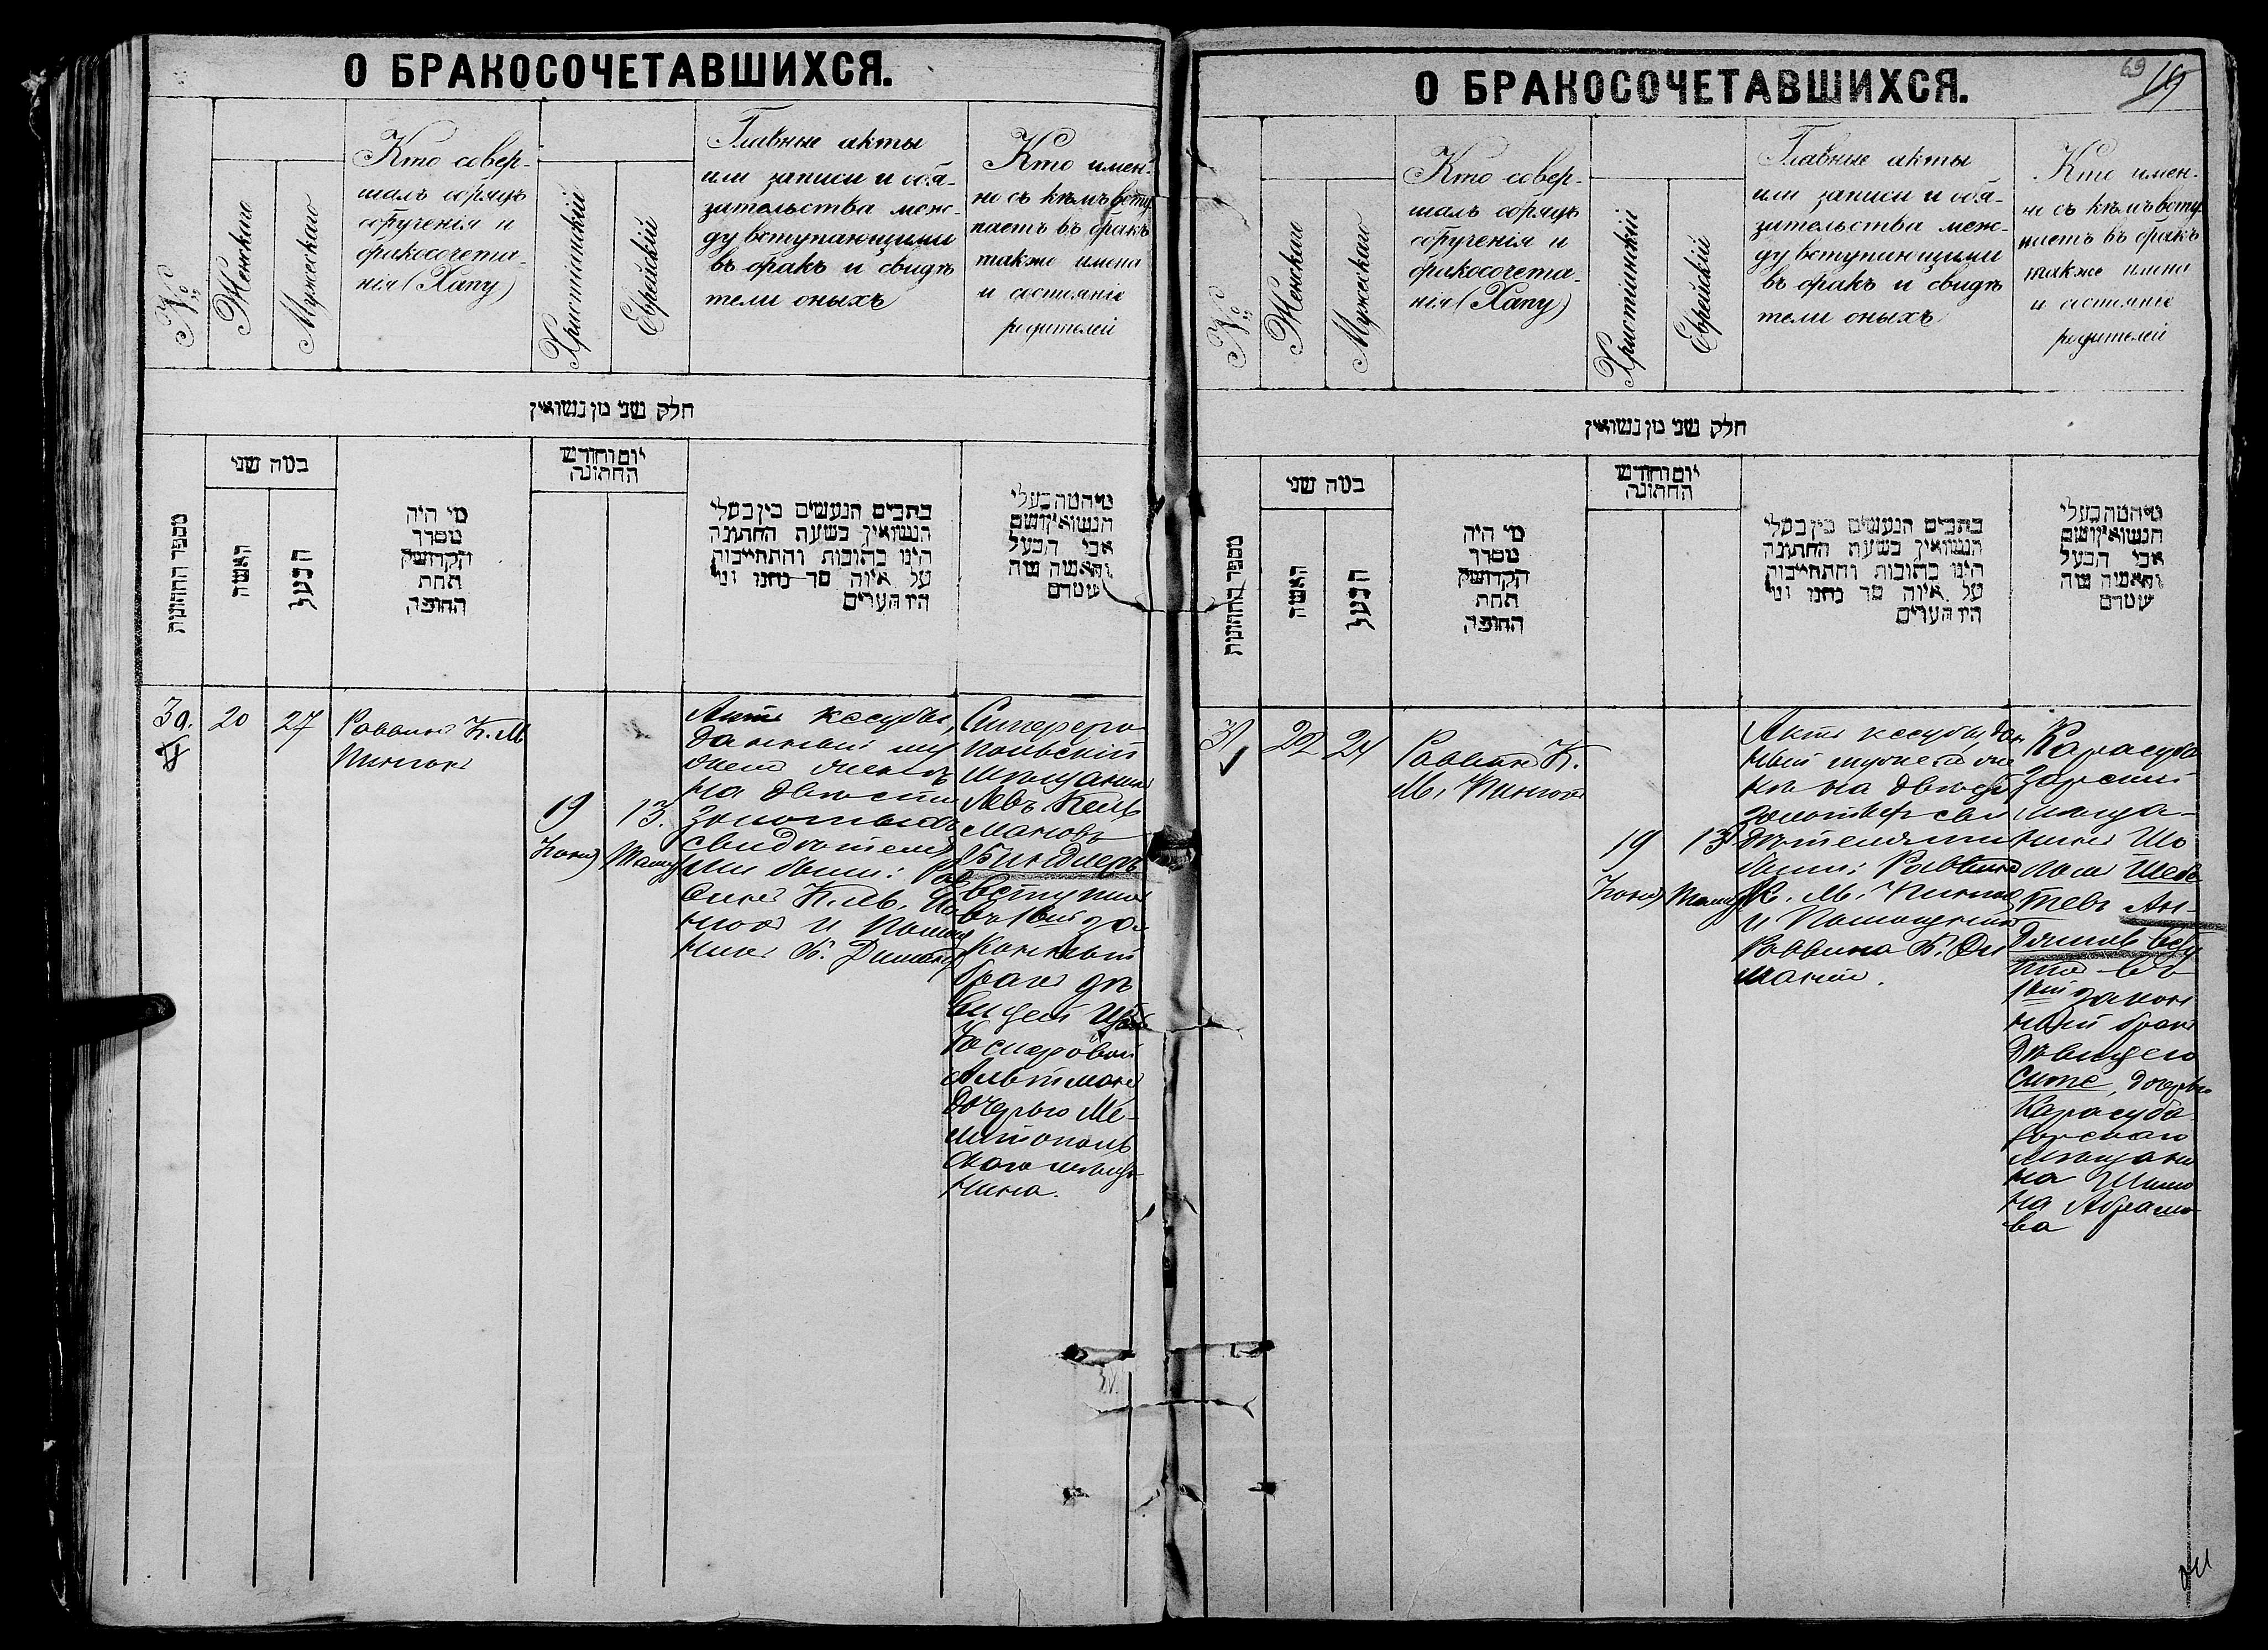 О БРАКОСОЧЕТАВШИХСЯ.
№
Женскаго
Мужескаго
Кто совер-
шалъ обрядъ
обрученія и
бракосочета-
нія (Хапу)
Христіанскій
Еврейскій
Главные акты
или записи и обя-
зательства меж-
ду вступающими
въ бракъ и свидѣ
тели оныхъ
Кто имен-
но съ кѣмъ всту
паетъ въ бракъ
также имена
и состояніе
родителей
חלק שני מן נשואין
מספר החתונות
כמה שני
האשה
הבעל
מי היה
מסדר
הקדושין
תחת
החופה
יום וחודש
החתונה
כתבים הנעשים בין בעלי
הנשואין בשעת החתונה
היינו כתובות והתחייבות
על איזה סך נתנו ומי
היו העדים
מי המה בעלי
הנשואין ושם
אבי הבעל
והאשה מה
עשרם
30.
20
27
Раввинъ К. М
Пинтопъ
19
Іюня
13.
Актъ кесубы,
данный му
жемъ женѣ
на двѣсти
золотыхъ
свидѣтеля
ми были:
и
Симферо
польскій
мѣщанинъ
Бинднеръ
вступилъ
въ 1вый за
конный
бракъ дѣ
вицей
Альтманъ
дочерью Ме-
литополь
скаго мѣща
нина.
О БРАКОСОЧЕТАВШИХСЯ.
69
19
№
Женскаго
Мужескаго
Кто совер-
шалъ обрядъ
обрученія и
бракосочета-
нія (Хапу)
Христіанскій
Еврейскій
Главные акты
или записи и обя-
зательства меж-
ду вступающими
въ бракъ и свидѣ
тели оныхъ
Кто имен-
но съ кѣмъ всту
паетъ въ бракъ
также имена
и состояніе
родителей
חלק שני מן נשואין
מספר החתונות
כמה שני
האשה
הבעל
מי היה
מסדר
הקדושין
תחת
החופה
יום וחודש
החתונה
כתבים הנעשים בין בעלי
הנשואין בשעת החתונה
היינו כתובות והתחייבות
על איזה סך נתנו ומי
היו העדים
מי המה בעלי
הנשואין ושם
אבי הבעל
והאשה מה
עשרם
31
22
24
Раввинъ К.
М. Пинтопъ
19
Іюня
13
Актъ кесубы, дан
ный мужемъ же
нѣ на двѣсти
золотыхъ сви
дѣтелями
были: Раввинъ
К. М.
и Помощникъ
Раввина
Карасуба
зарскій
мѣща-
нинъ
всту
пилъ въ
1вый закон
ный бракъ
дѣвицею
Симе, дочерью
Карасуба
зарскаго
мѣщани
на Шимо
на Абрамо
ва